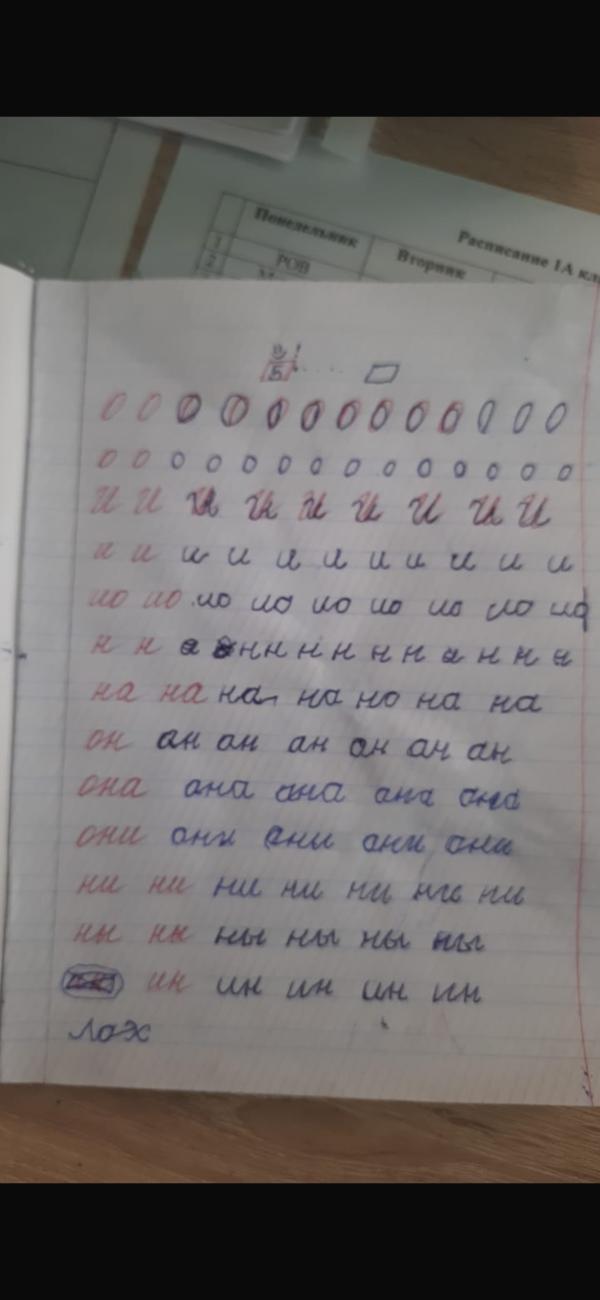 Расписание 1А кла
Понедельник Вторник
1 РОВ
2
5
О О О О О О О О О О О О О
о о о о о о о о о о о о о о
И И И И И И И И И
и и и и и и и и и и и и
ио ио ио ио ио ио ио ио ио
н н а н н н н н н а н н н
на на на на но на на
он он он он он он он
она она она она она
они они они они они
ни ни ни ни ни ни ни
ны ны ны ны ны ны
ин ин ин ин ин
лох